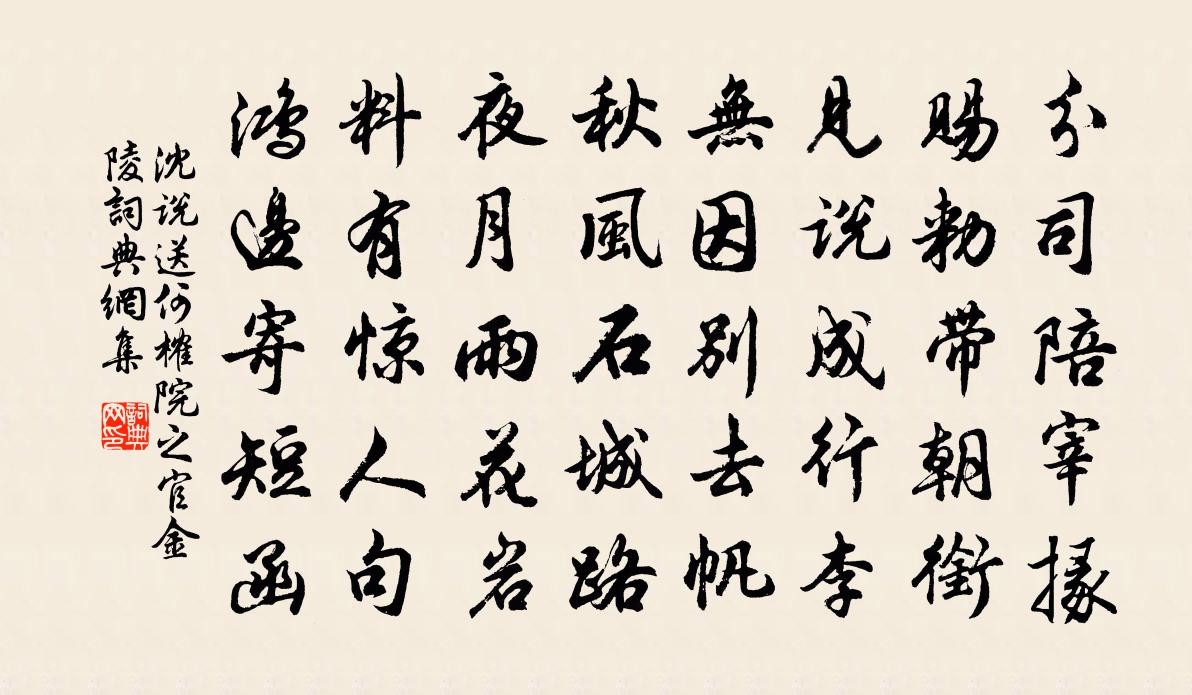 分司陪宰掾
賜勅帶朝銜
見说成行李
無因别去帆
秋風石城路
夜月雨花岩
料有惊人句
鴻邊寄短函
沈说送何榷院之官金
陵詞典網集
詞典
网印